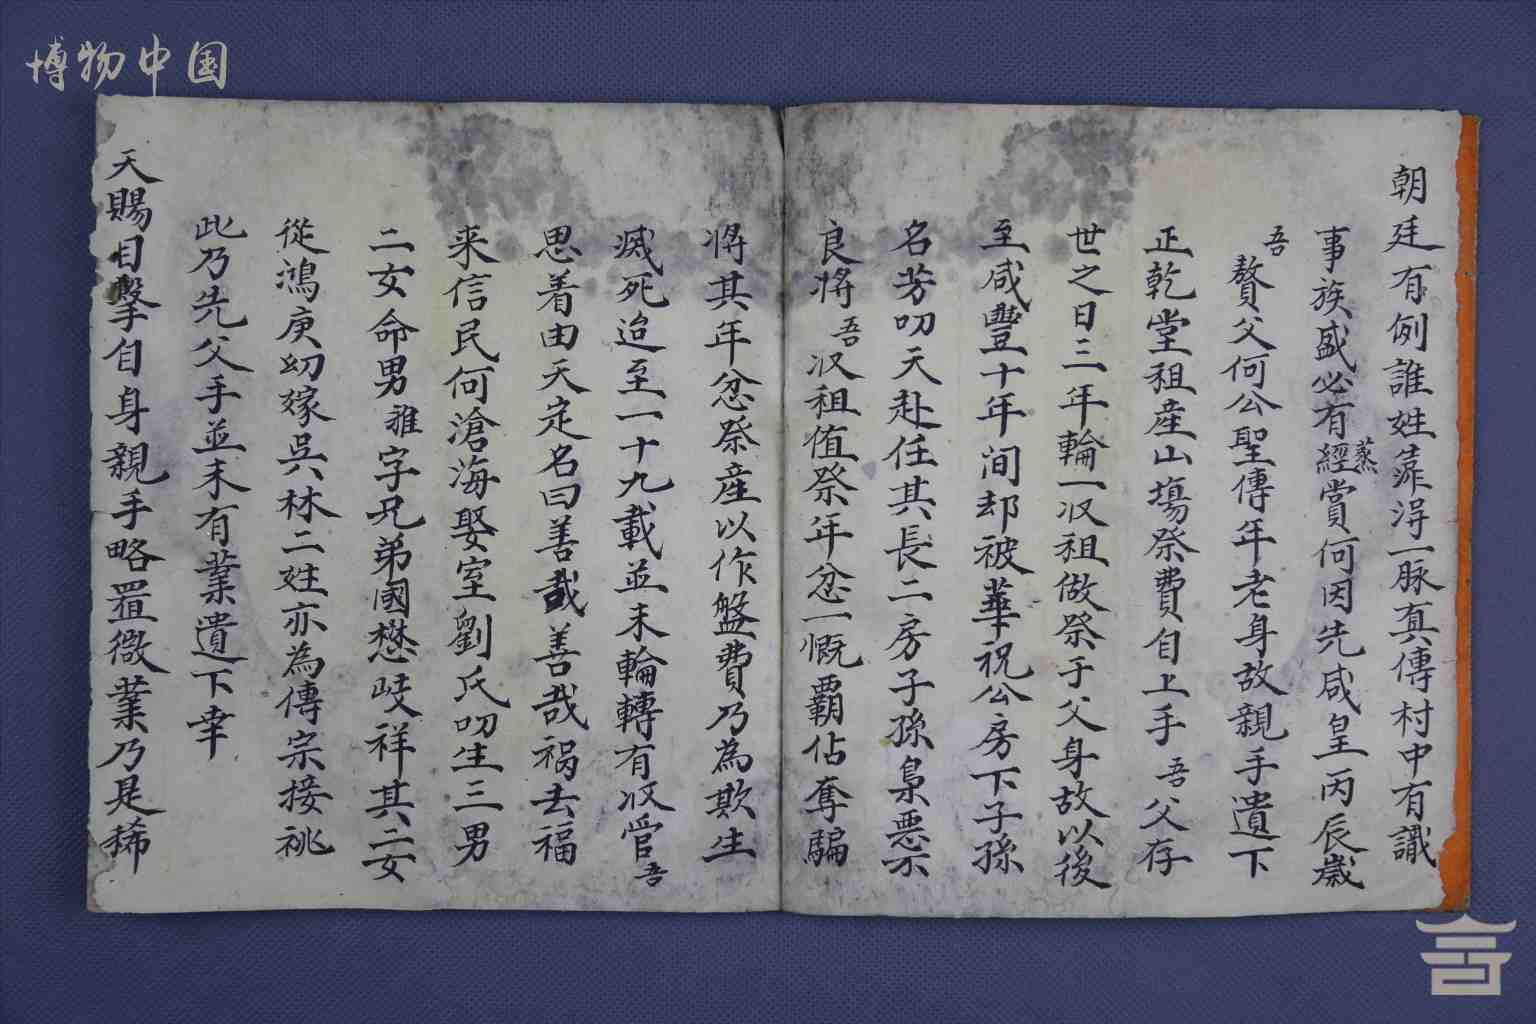 博物中国
朝廷有例誰姓靠得一脉真傳村中有識
事族盛必有經蒸賞何因先咸皇丙辰歲
吾贅父何公聖傳年老身故親手遺下
正乾堂祖産山塲祭費自上手吾父存
世之日三年輪一収祖做祭于父身故以後
至咸豐十年间却被華祝公房下子孫
名芳叨天赴任其長二房子孫梟悪不
良将吾収祖值祭年忿一慨覇佔奪騙
将其年忿祭産以作盤費乃為欺生
滅死迨至一十九載並未輪轉有収管吾
思着由天定名曰善哉善哉禍去福
来信民何滄海娶室劉氏叨生三男
二女命男雅字兄弟國懋岐祥其二女
從鴻庚幼嫁吳林二姓亦為傳宗接祧
此乃先父手並未有業遺下幸
天賜目擊自身親手略置微業乃是稀